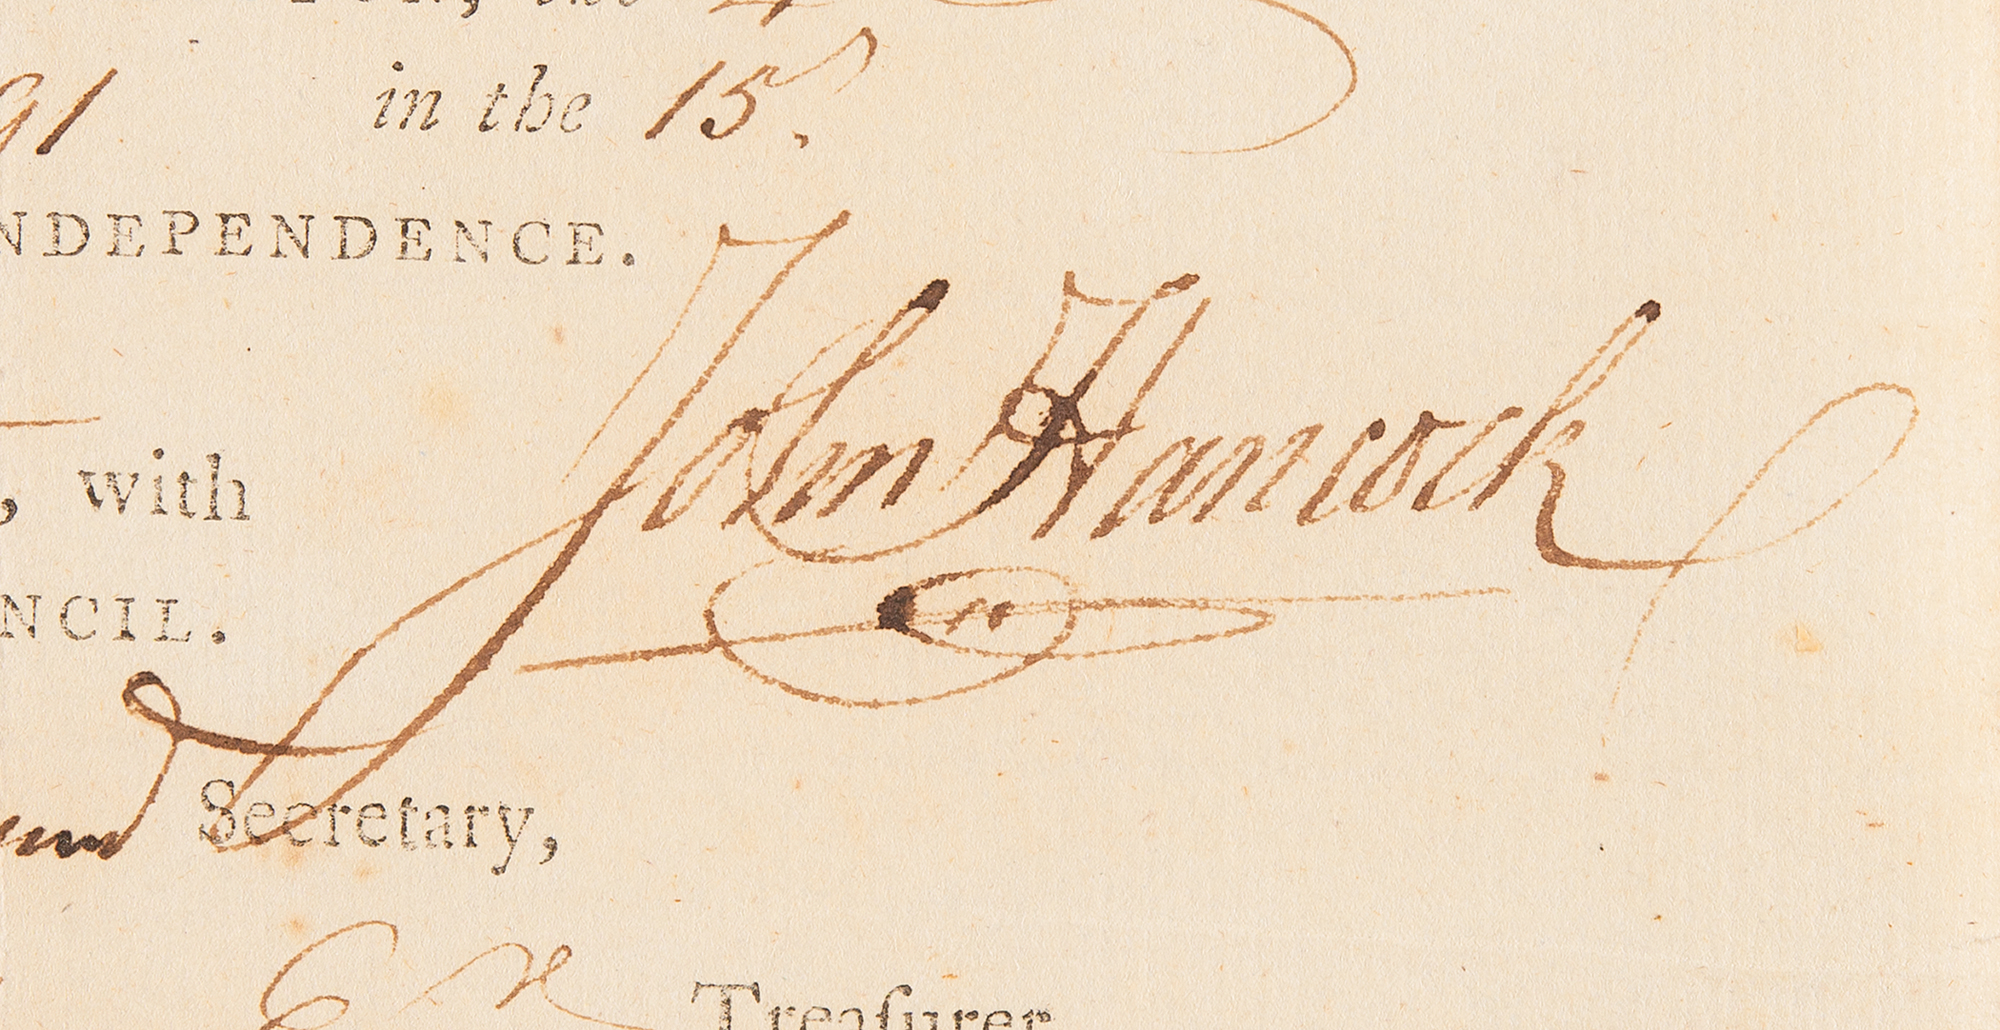 the
91 in the 15.
NDEPENDENCE.
John Hancock
, with
NCIL.
Secretary,
Treaſurer